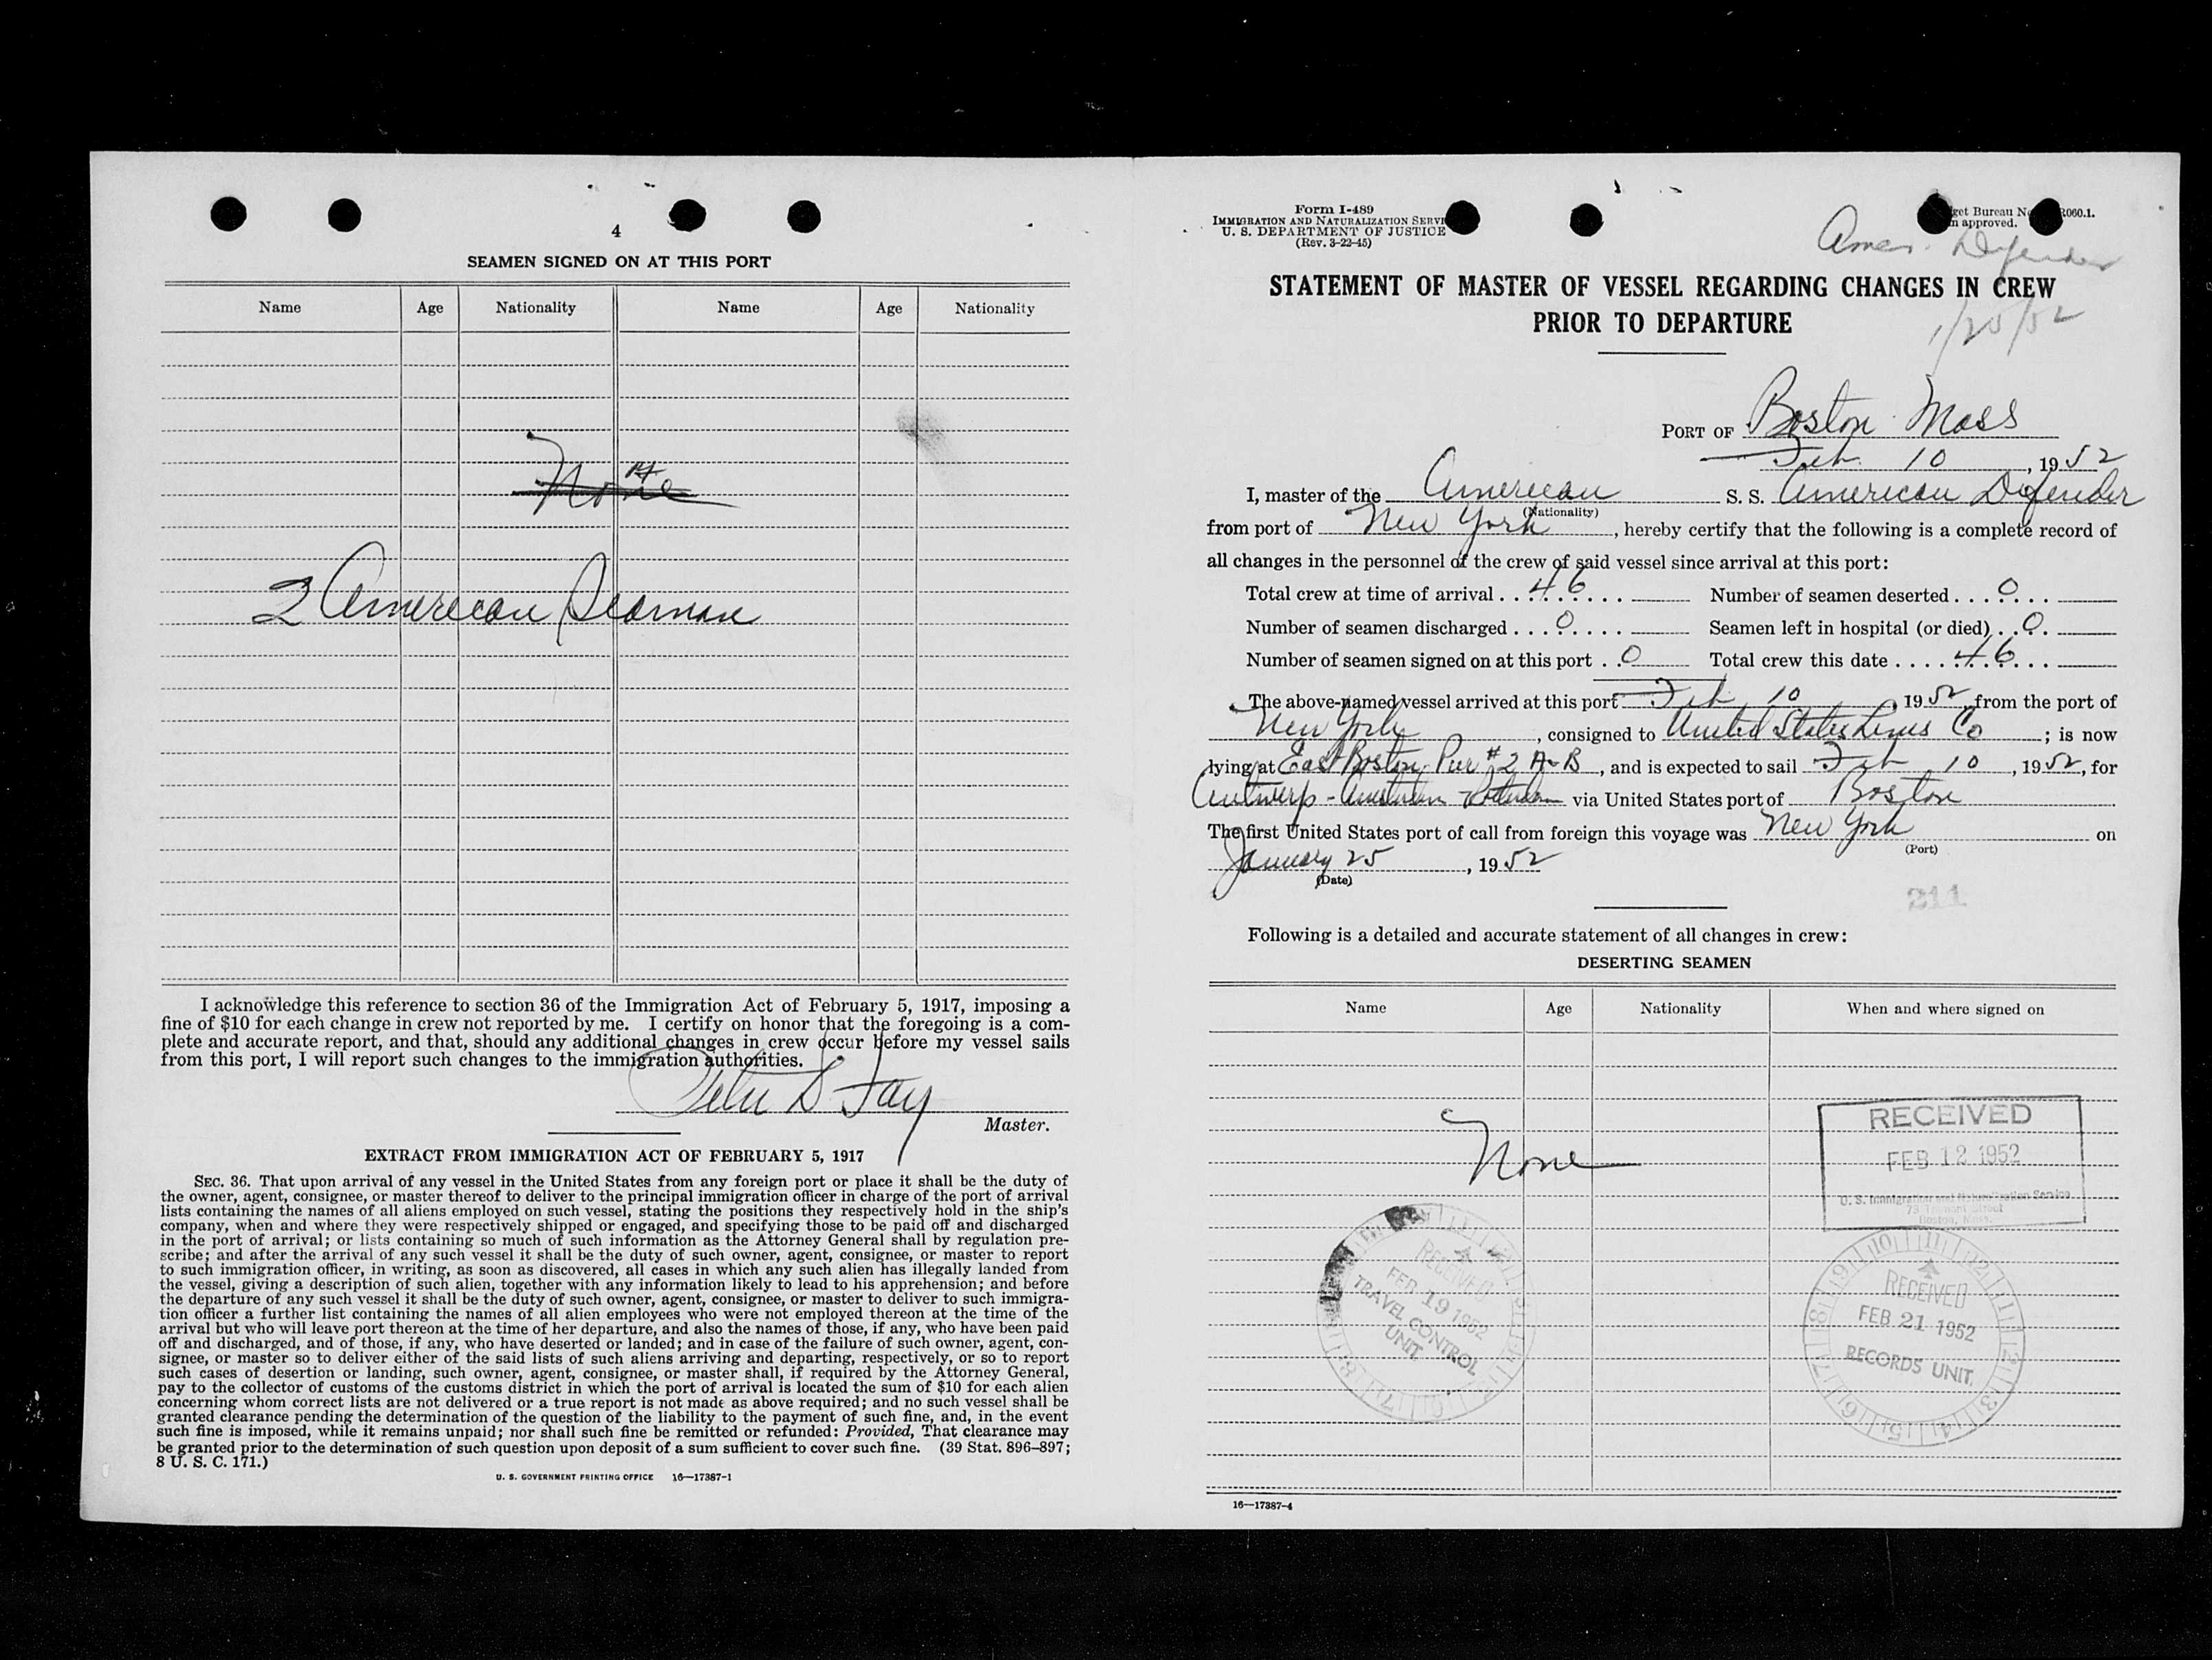 4
SEAMEN SIGNED ON AT THIS PORT
Name Age Nationality Name Age Nationality
None
2 American Seaman
I acknowledge this reference to section 36 of the Immigration Act of February 5, 1917, imposing a
fine of $10 for each change in crew not reported by me. I certify on honor that the foregoing is a com-
plete and accurate report, and that, should any additional changes in crew occur before my vessel sails
from this port, I will report such changes to the immigration authorities.
Peter D Fay
Master.
EXTRACT FROM IMMIGRATION ACT OF FEBRUARY 5, 1917
SEC. 36. That upon arrival of any vessel in the United States from any foreign port or place it shall be the duty of
the owner, agent, consignee, or master thereof to deliver to the principal immigration officer in charge of the port of arrival
lists containing the names of all aliens employed on such vessel, stating the positions they respectively hold in the ship's
company, when and where they were respectively shipped or engaged, and specifying those to be paid off and discharged
in the port of arrival; or lists containing so much of such information as the Attorney General shall by regulation pre-
scribe; and after the arrival of any such vessel it shall be the duty of such owner, agent, consignee, or master to report
to such immigration officer, in writing, as soon as discovered, all cases in which any such alien has illegally landed from
the vessel, giving a description of such alien, together with any information likely to lead to his apprehension; and before
the departure of any such vessel it shall be the duty of such owner, agent, consignee, or master to deliver to such immigra-
tion officer a further list containing the names of all alien employees who were not employed thereon at the time of the
arrival but who will leave port thereon at the time of her departure, and also the names of those, if any, who have been paid
off and discharged, and of those, if any, who have deserted or landed; and in case of the failure of such owner, agent, con-
signee, or master so to deliver either of the said lists of such aliens arriving and departing, respectively, or so to report
such cases of desertion or landing, such owner, agent, consignee, or master shall, if required by the Attorney General,
pay to the collector of customs of the customs district in which the port of arrival is located the sum of $10 for each alien
concerning whom correct lists are not delivered or a true report is not made as above required; and no such vessel shall be
granted clearance pending the determination of the question of the liability to the payment of such fine, and, in the event
such fine is imposed, while it remains unpaid; nor shall such fine be remitted or refunded: Provided, That clearance may
be granted prior to the determination of such question upon deposit of a sum sufficient to cover such fine. (39 Stat. 896–897;
8 U. S. C. 171.)
U. S. GOVERNMENT PRINTING OFFICE 16—17387-1
Form I-489
IMMIGRATION AND NATURALIZATION SERVI
U. S. DEPARTMENT OF JUSTICE
(Rev. 3-22-45)
get Bureau N R060.1.
n approved.
Amer. Defender
STATEMENT OF MASTER OF VESSEL REGARDING CHANGES IN CREW
PRIOR TO DEPARTURE
1/25/52
PORT OF Boston Mass
Feb 10, 1952
I, master of the American S. S. American Defender
(Nationality)
from port of New York, hereby certify that the following is a complete record of
all changes in the personnel of the crew of said vessel since arrival at this port:
Total crew at time of arrival 46 Number of seamen deserted 0
Number of seamen discharged 0 Seamen left in hospital (or died) 0
Number of seamen signed on at this port 0 Total crew this date 46
The above-named vessel arrived at this port Feb 10 1952 from the port of
New York, consigned to United States Lines Co; is now
lying at East Boston Pier #2 A-B, and is expected to sail Feb 10, 1952, for
Antwerp - via United States port of Boston
The first United States port of call from foreign this voyage was New York on
(Port)
January 25, 1952
(Date)
211
Following is a detailed and accurate statement of all changes in crew:
DESERTING SEAMEN
Name Age Nationality When and where signed on
None
RECEIVED
FEB 12 1952
U. S. Immigration and Naturalization Service
73 Tremont Street
Boston, Mass.
RECEIVED
FEB 19 1952
TRAVEL CONTROL
UNIT
RECEIVED
FEB 21 1952
RECORDS UNIT
16—17387-4